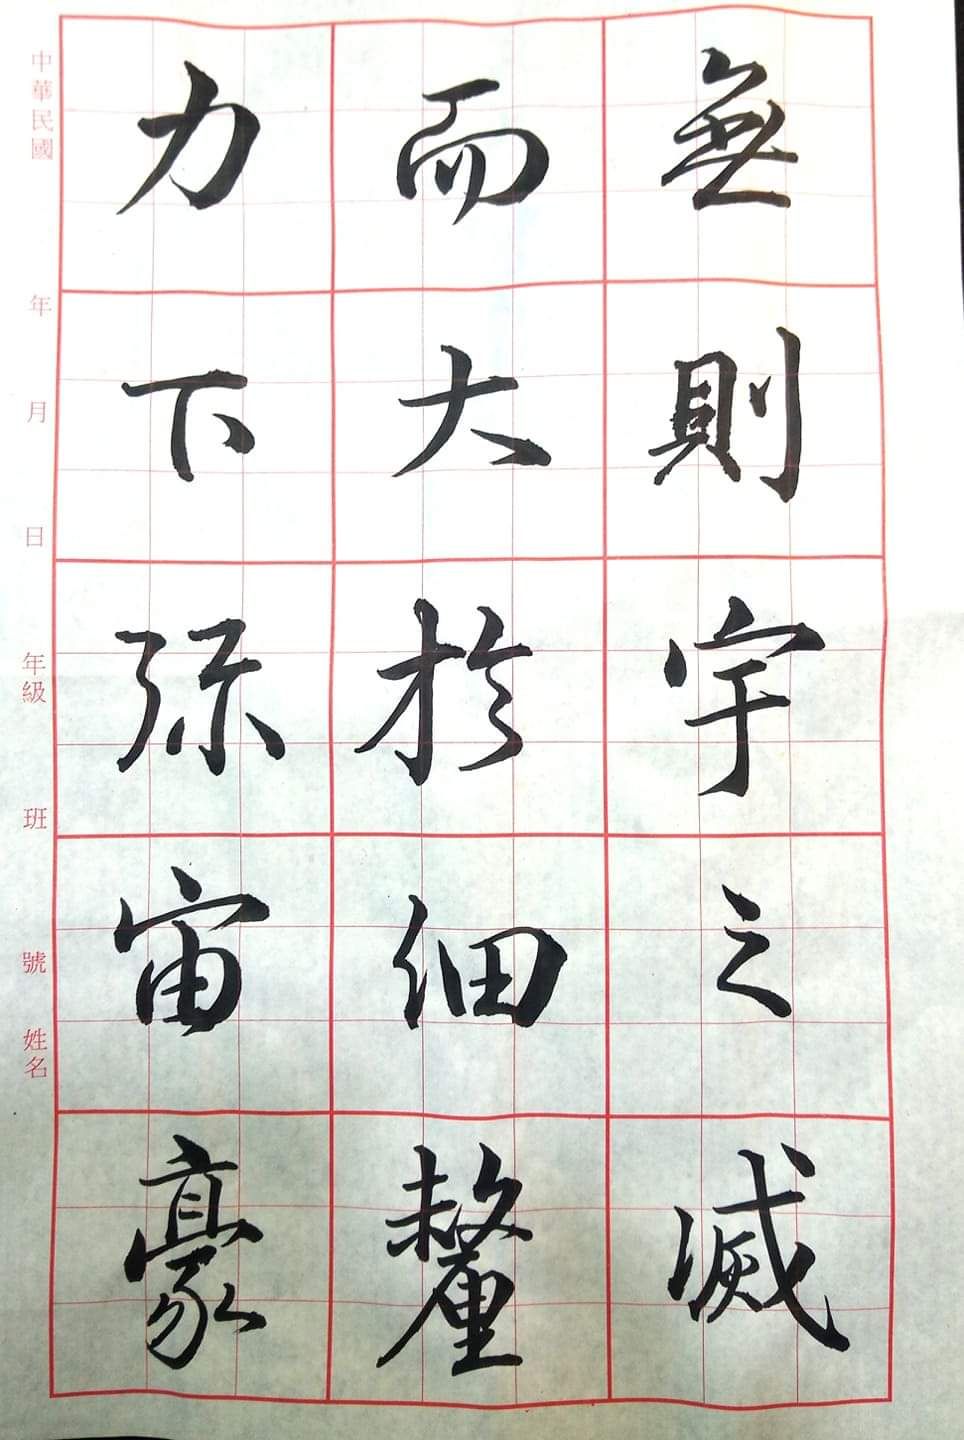 無則宇之滅
而大於細釐
力下弥宙豪
中華民國 年 月 日 年級 班 號 姓名